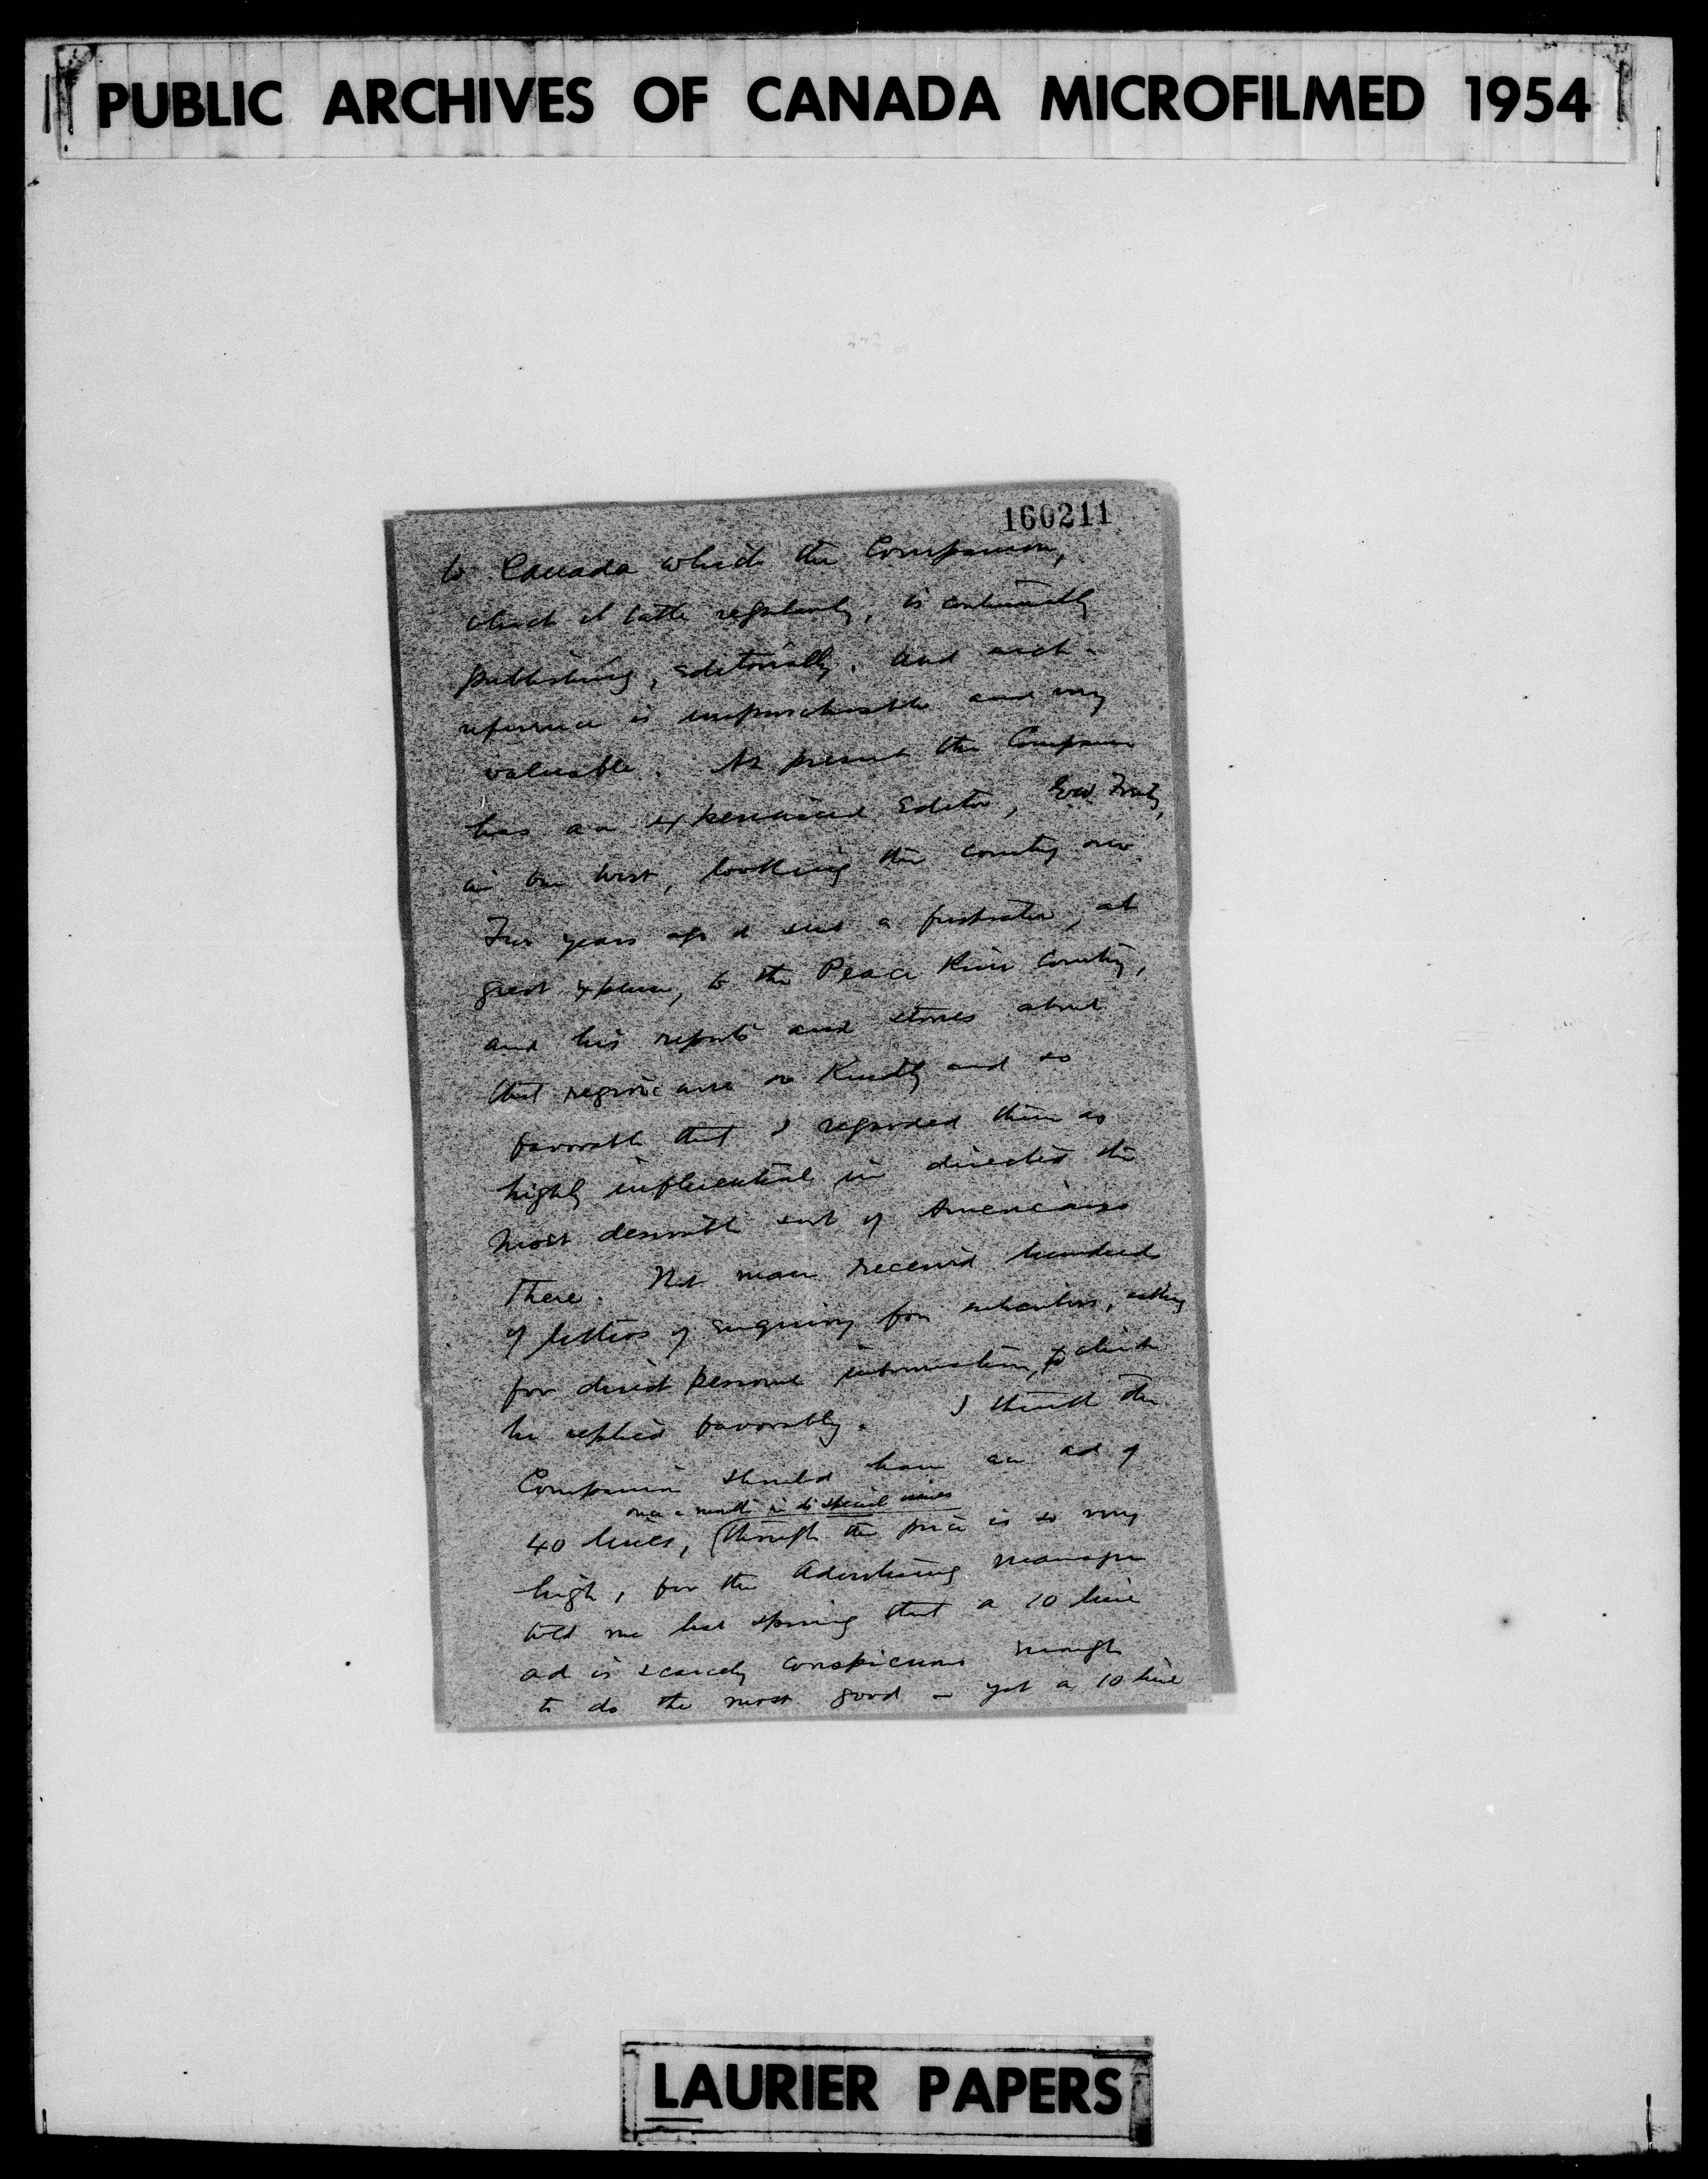 PUBLIC ARCHIVES OF CANADA MICROFILMED 1954
160211
to Canada which the Companion,
which it regularly, is continually
publishing, editorially. And such
reference is unpurchasable and very
valuable. At present the Companion
has an experienced Editor,
in the West, looking the country over.
years ago it sent a at
great expense, to the Peace River Country,
and his reports and stories about
that region were so kindly and so
favorable that I regarded them as
highly influential in directing the
most desirable sort of Americans
there. man received hundreds
of letters of enquiry from subscribers, asking
for direct personal information, to which
he replied favorably. I think the
Companion should have an ad of
once a month in special issues
40 lines, (though the price is so very
high, for the Advertising manager
told me last spring that a 10 line
ad is scarcely conspicuous enough
to do the most good – yet a 10 line
LAURIER PAPERS